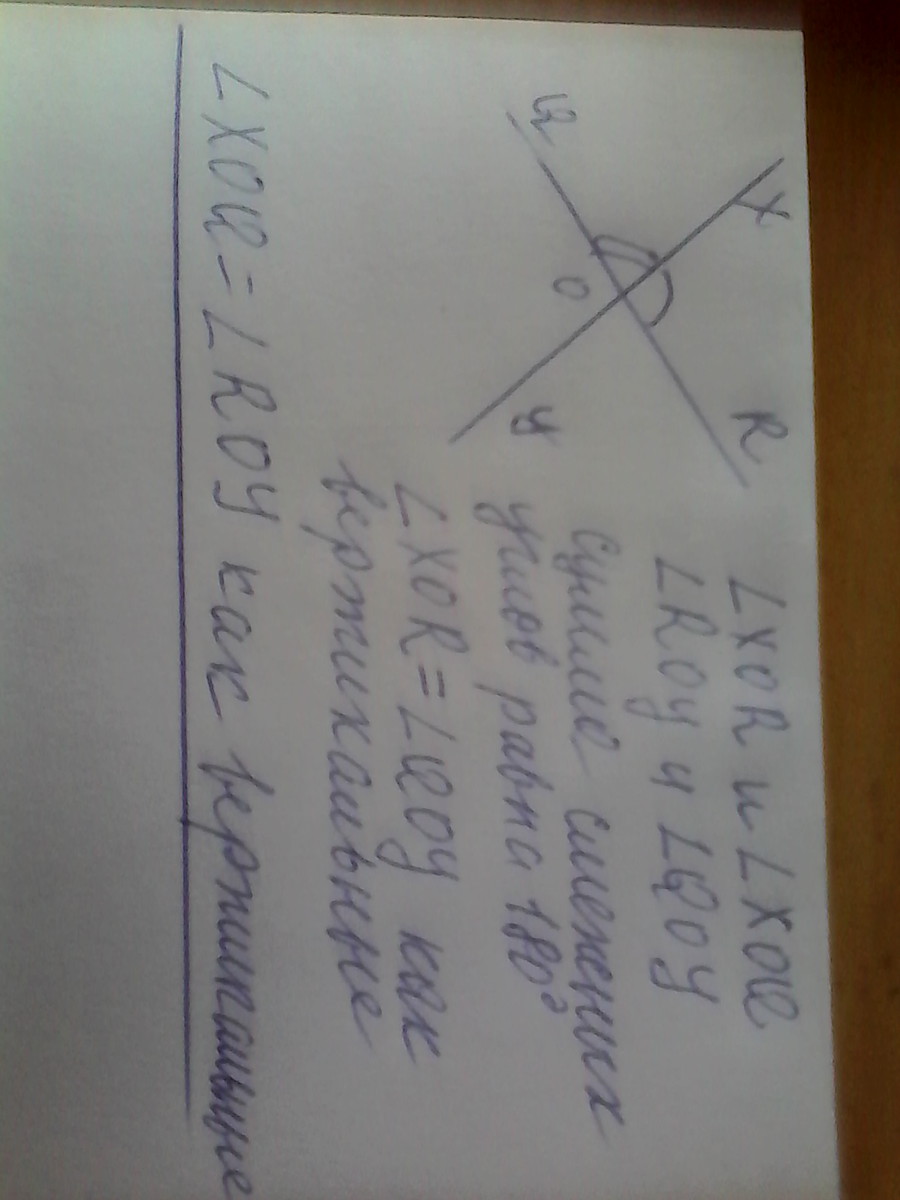 X
R
Q
O
y
∠XOR и ∠XOQ
∠ROy и ∠QOy
сумме смежных
углов равна 180°
∠XOR = ∠QOy как
вертикальные
∠XOQ = ∠ROy как вертикальные